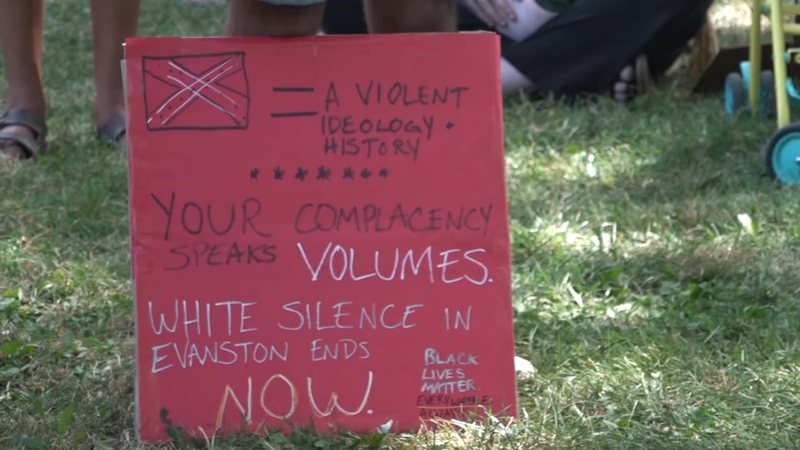 = A VIOLENT
IDEOLOGY +
HISTORY
* * * * * * *
YOUR COMPLACENCY
SPEAKS VOLUMES.
WHITE SILENCE IN
EVANSTON ENDS
NOW.
BLACK
LIVES
MATTER.